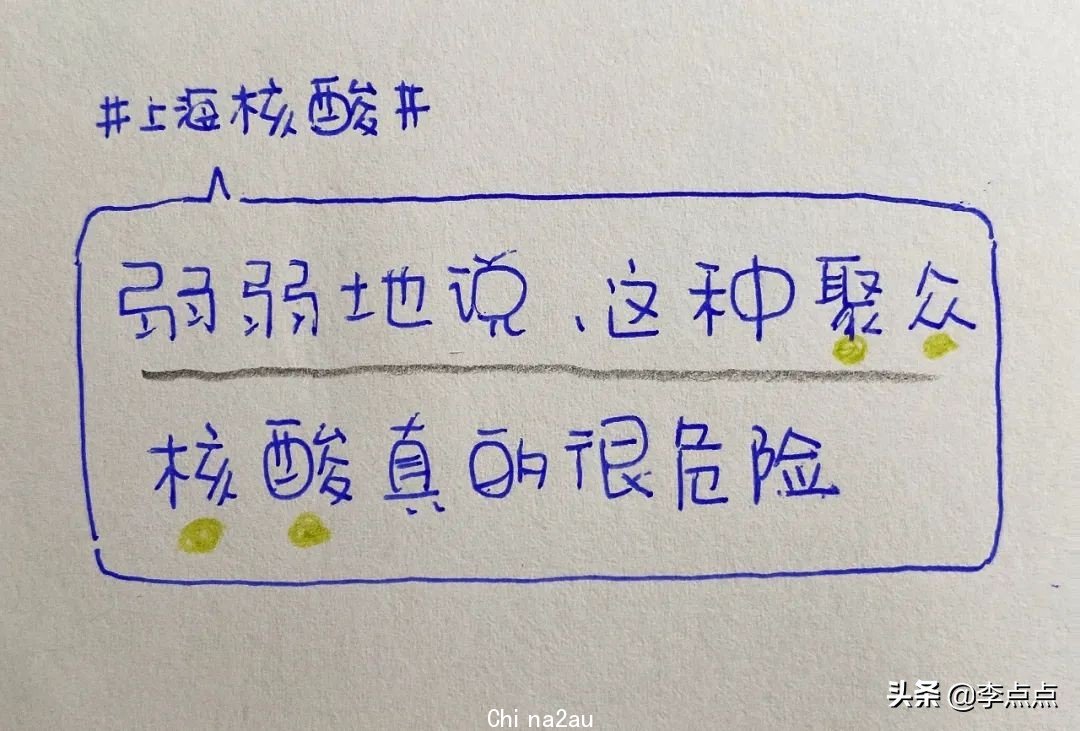 #上海核酸#
弱弱地说、这种聚众
核酸真的很危险
头条 @李点点
China2au